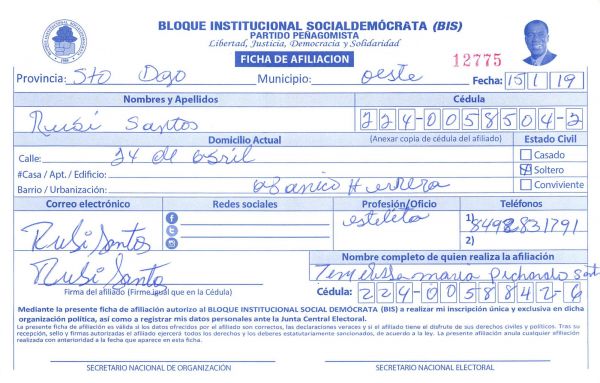 BLOQUE INSTITUCIONAL SOCIALDEMÓCRATA (BIS)
PARTIDO PEÑAGOMISTA
Libertad, Justicia, Democracia y Solidaridad
FICHA DE AFILIACION
12775
Provincia: Sto Dgo Municipio: oeste Fecha: 15/1/19
Nombres y Apellidos Cédula
Rubí Santos 224-0058504-2
Domicilio Actual (Anexar copia de cédula del afiliado) Estado Civil
Calle: 24 de abril Casado
#Casa / Apt. / Edificio: Soltero
Barrio / Urbanización: abanico Herrera Conviviente
Correo electrónico Redes sociales Profesión/Oficio Teléfonos
Rubi Santos estelita 1) 8492831791
2)
Nombre completo de quien realiza la afiliación
Rubi Santo maria Pichardo
Firma del afiliado (Firme igual que en la Cédula) Cédula: 224-0058842-6
Mediante la presente ficha de afiliación autorizo al BLOQUE INSTITUCIONAL SOCIAL DEMÓCRATA (BIS) a realizar mi inscripción única y exclusiva en dicha
organización política, así como a registrar mis datos personales ante la Junta Central Electoral.
La presente ficha de afiliación es válida si los datos ofrecidos por el afiliado son correctos, las declaraciones veraces y si el afiliado tiene el disfrute de sus derechos civiles y políticos. Tras su
recepción, sello y firmas autorizadas el afiliado ejercerá todos los derechos y los deberes estatutariamente sancionados, de acuerdo a la ley. La presente afiliación anula cualquier afiliación
realizada con anterioridad a la fecha que aparece en esta ficha.
SECRETARIO NACIONAL DE ORGANIZACIÓN SECRETARIO NACIONAL ELECTORAL